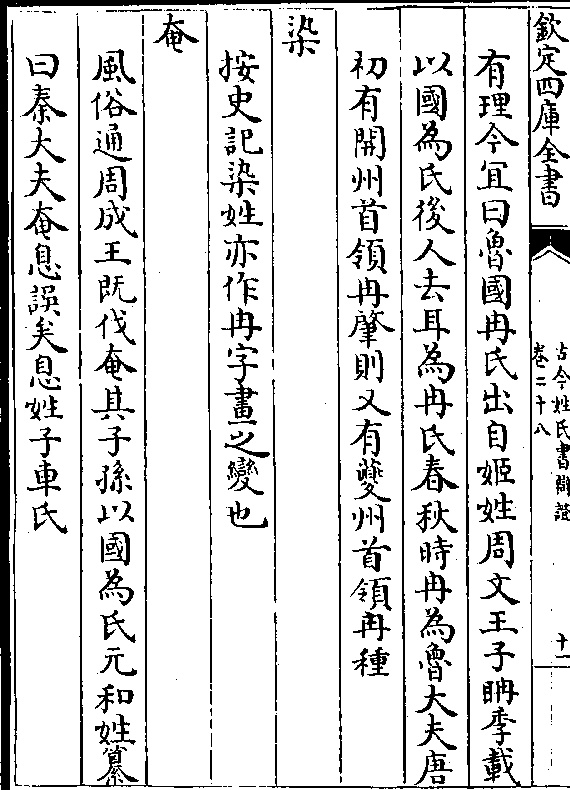 欽定四庫全書
古今姓氏書辯證
卷二十八
十一
有理今宜曰魯國冉氏出自姬姓周文王子冉季載
以國為氏後人去耳為冉氏春秋時冉為魯大夫唐
初有開州首領冉肇則又有夔州首領冉種
染
按史記染姓亦作冉字畫之變也
奄
風俗通周成王既伐奄其子孫以國為氏元和姓纂
曰秦大夫奄息誤矣息姓子車氏